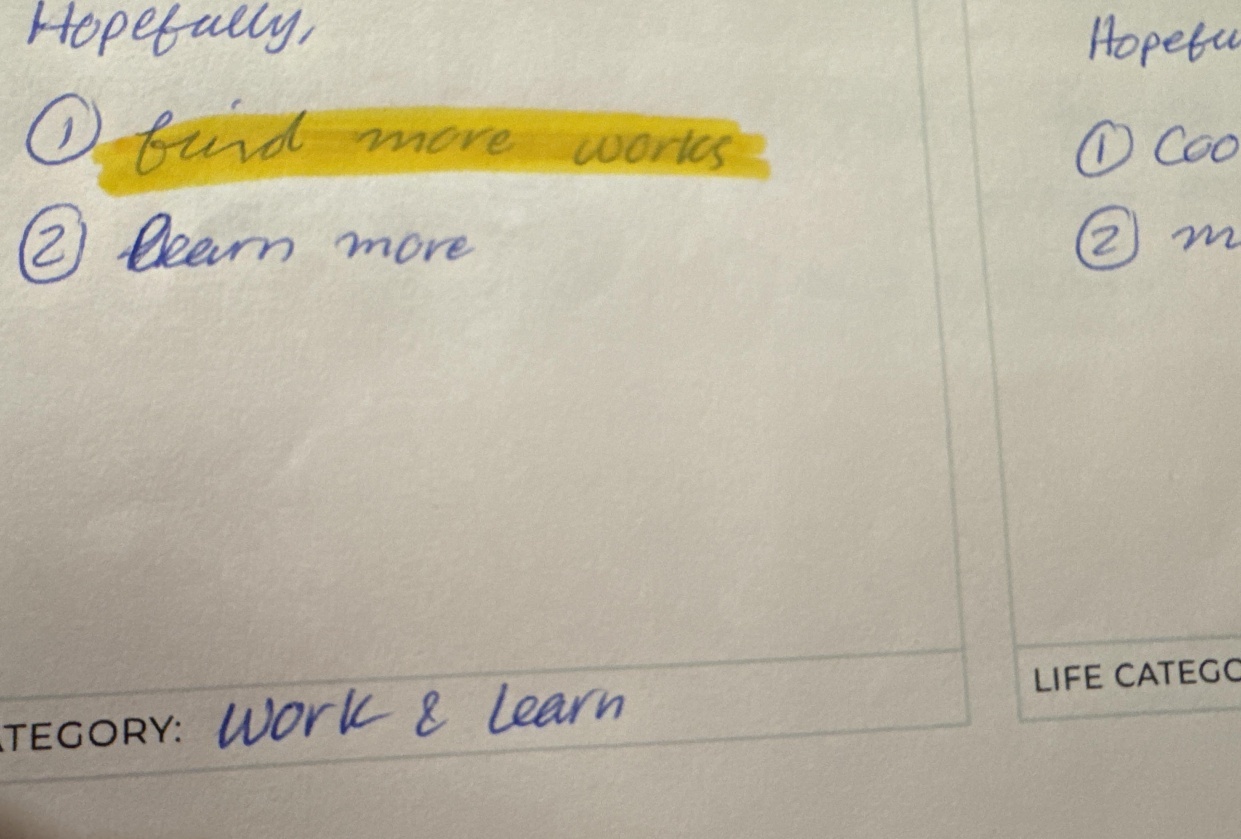 Hopefully,
① find more works
② Learn more
ATEGORY: Work & Learn
Hopefu
① Coo
② m
LIFE CATEGO